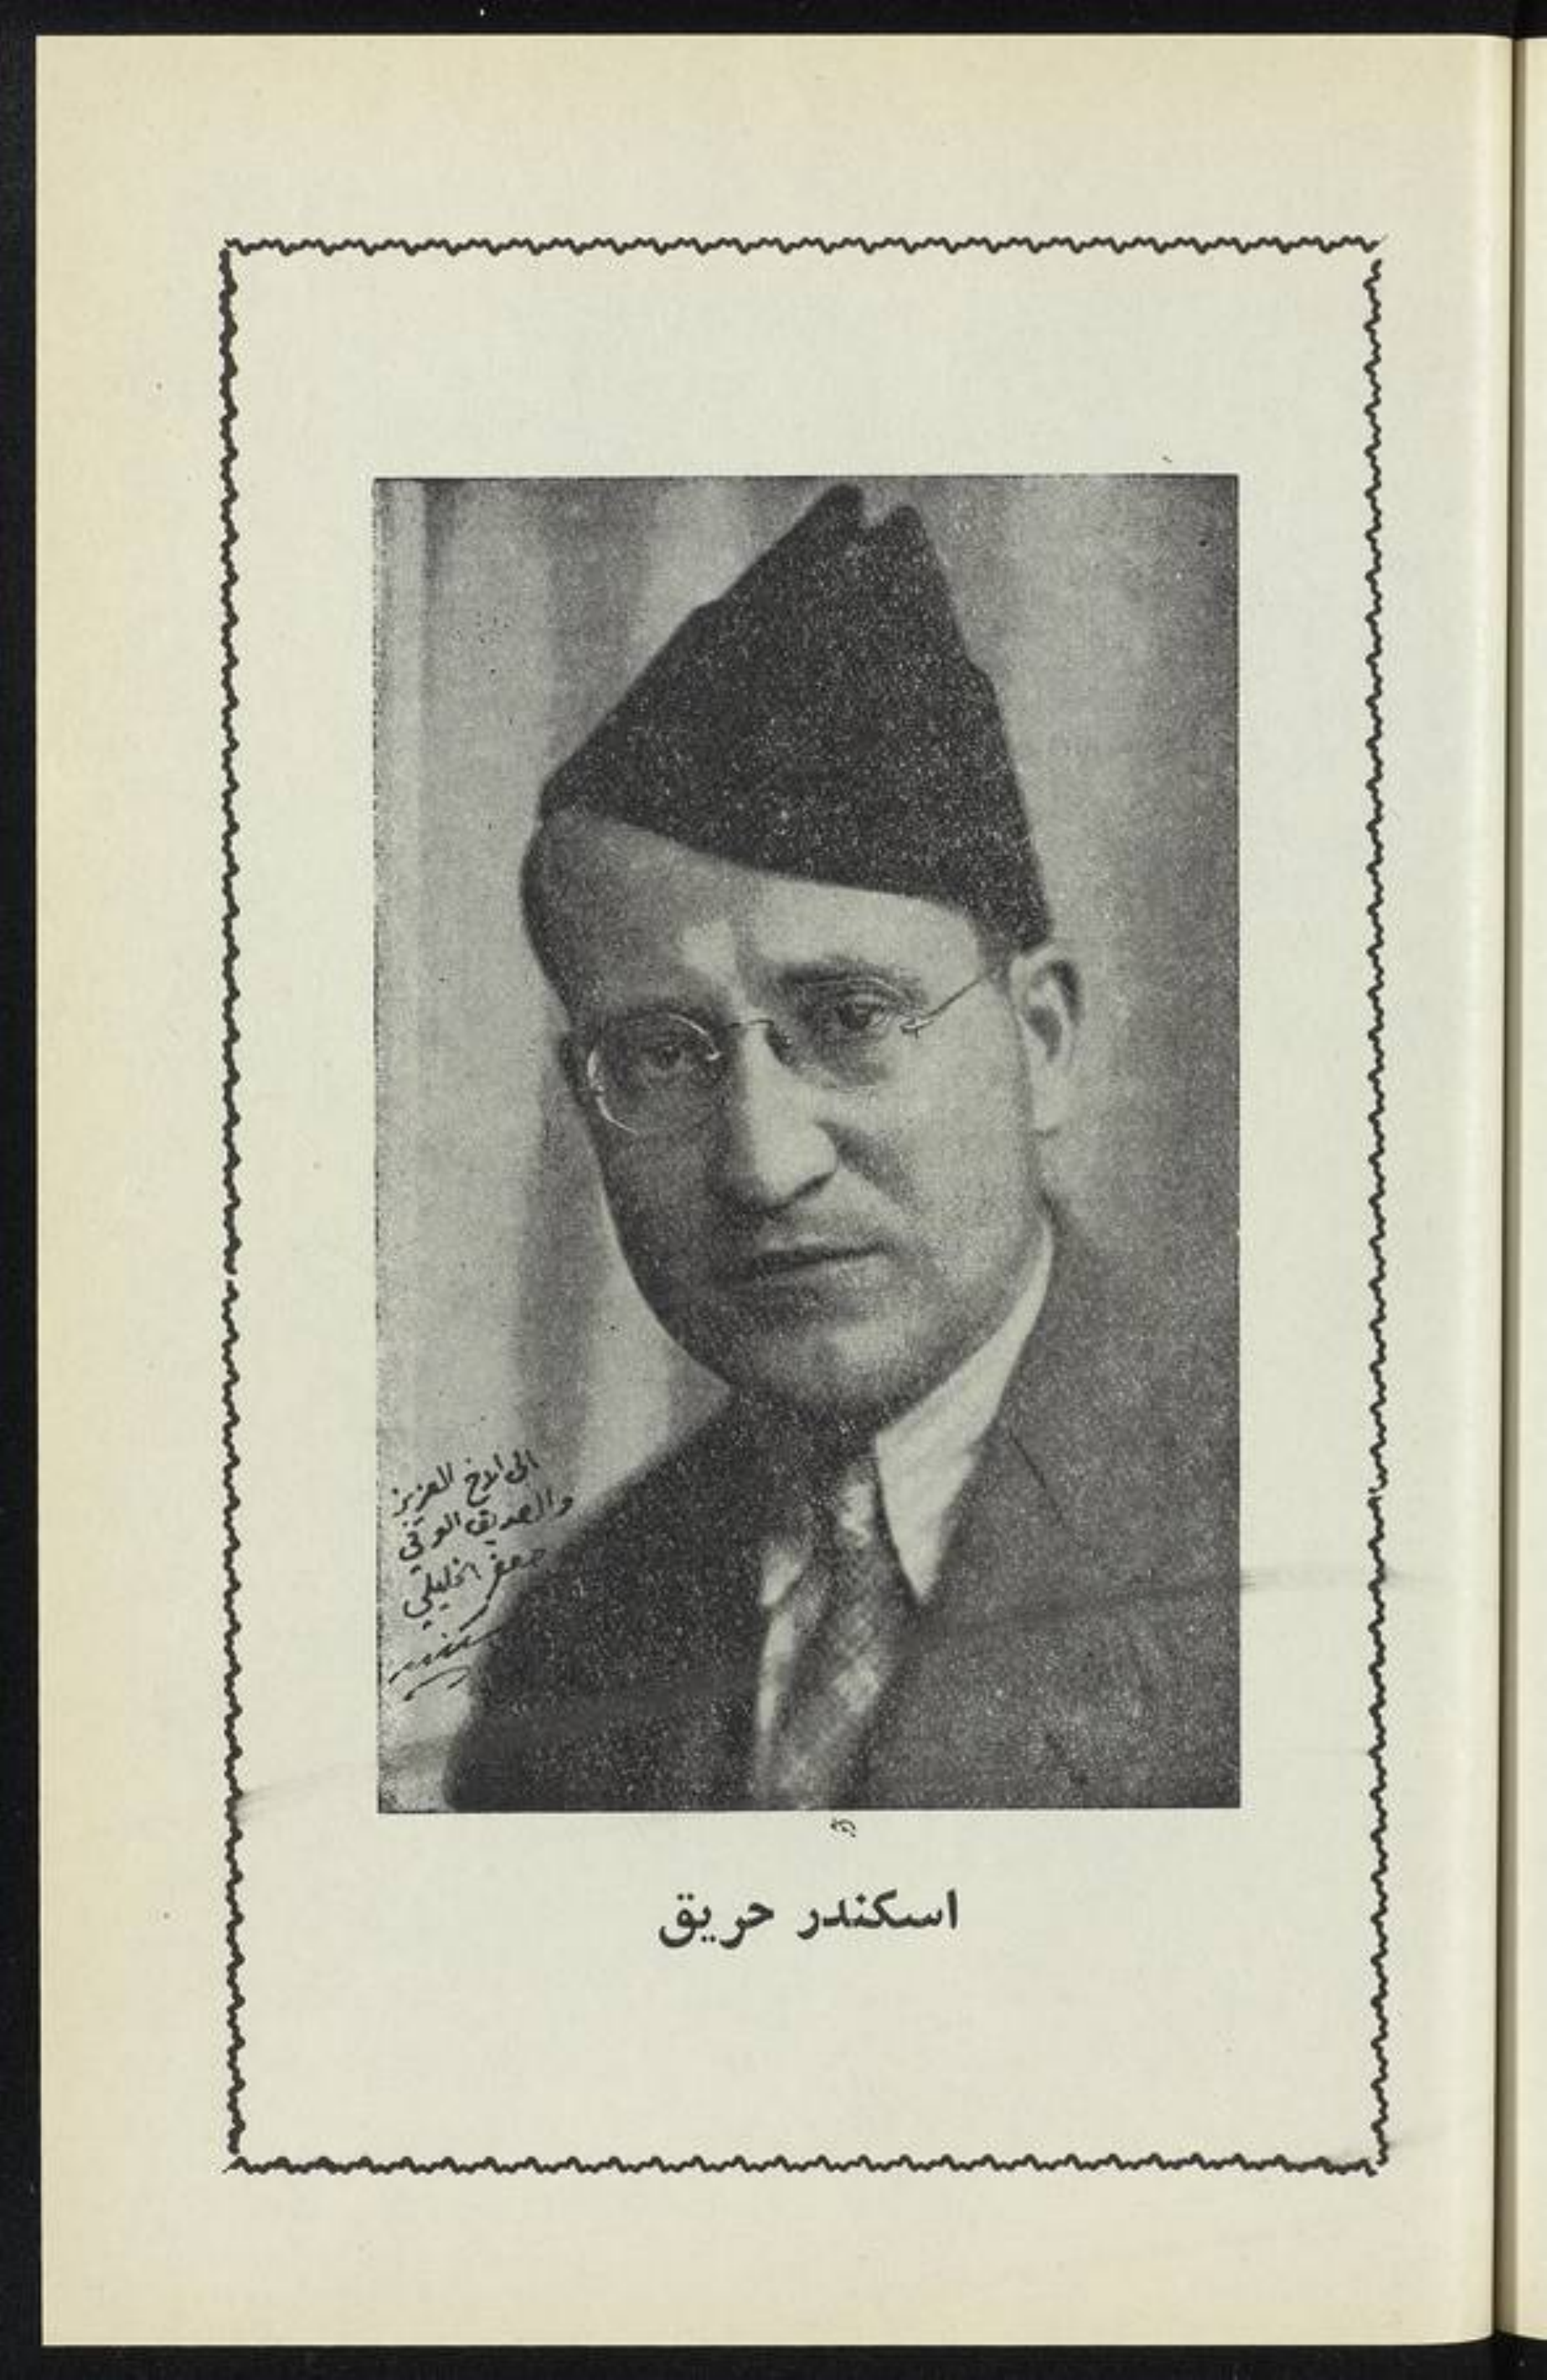 الى الاخ العزيز
والصديق الوفي
جعفر الخليلي
اسكندر
اسكندر حريق